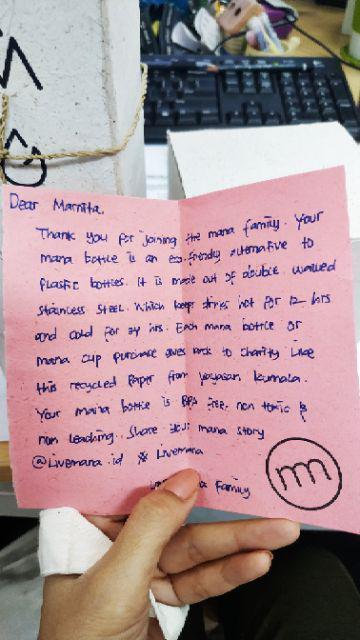 Dear Marnita,
Thank you for joining the mana family. Your
mana bottle is an eco-friendly alternative to
plastic bottles. It is made out of double walled
stainless steel. Which keep drinks hot for 12 hrs
and cold for 24 hrs. Each mana bottle or
mana cup purchase gives back to charity like
this recycled paper from yayasan kumala.
Your mana bottle is BPA free, non toxic &
non leaching. Share your mana story
@Livemana.id # Livemana
family
m